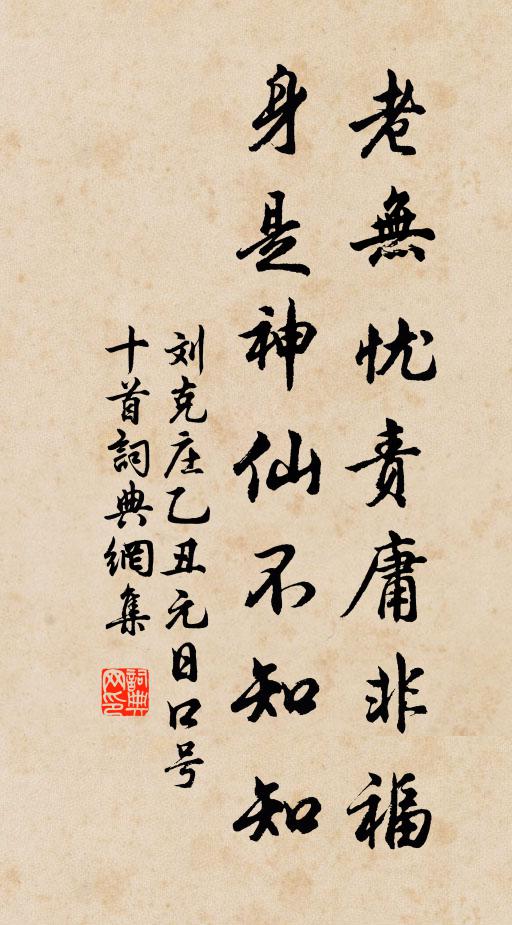 老無忧责庸非福
身是神仙不知知
刘克庄乙丑元日口号
十首詞典網集
詞典網印